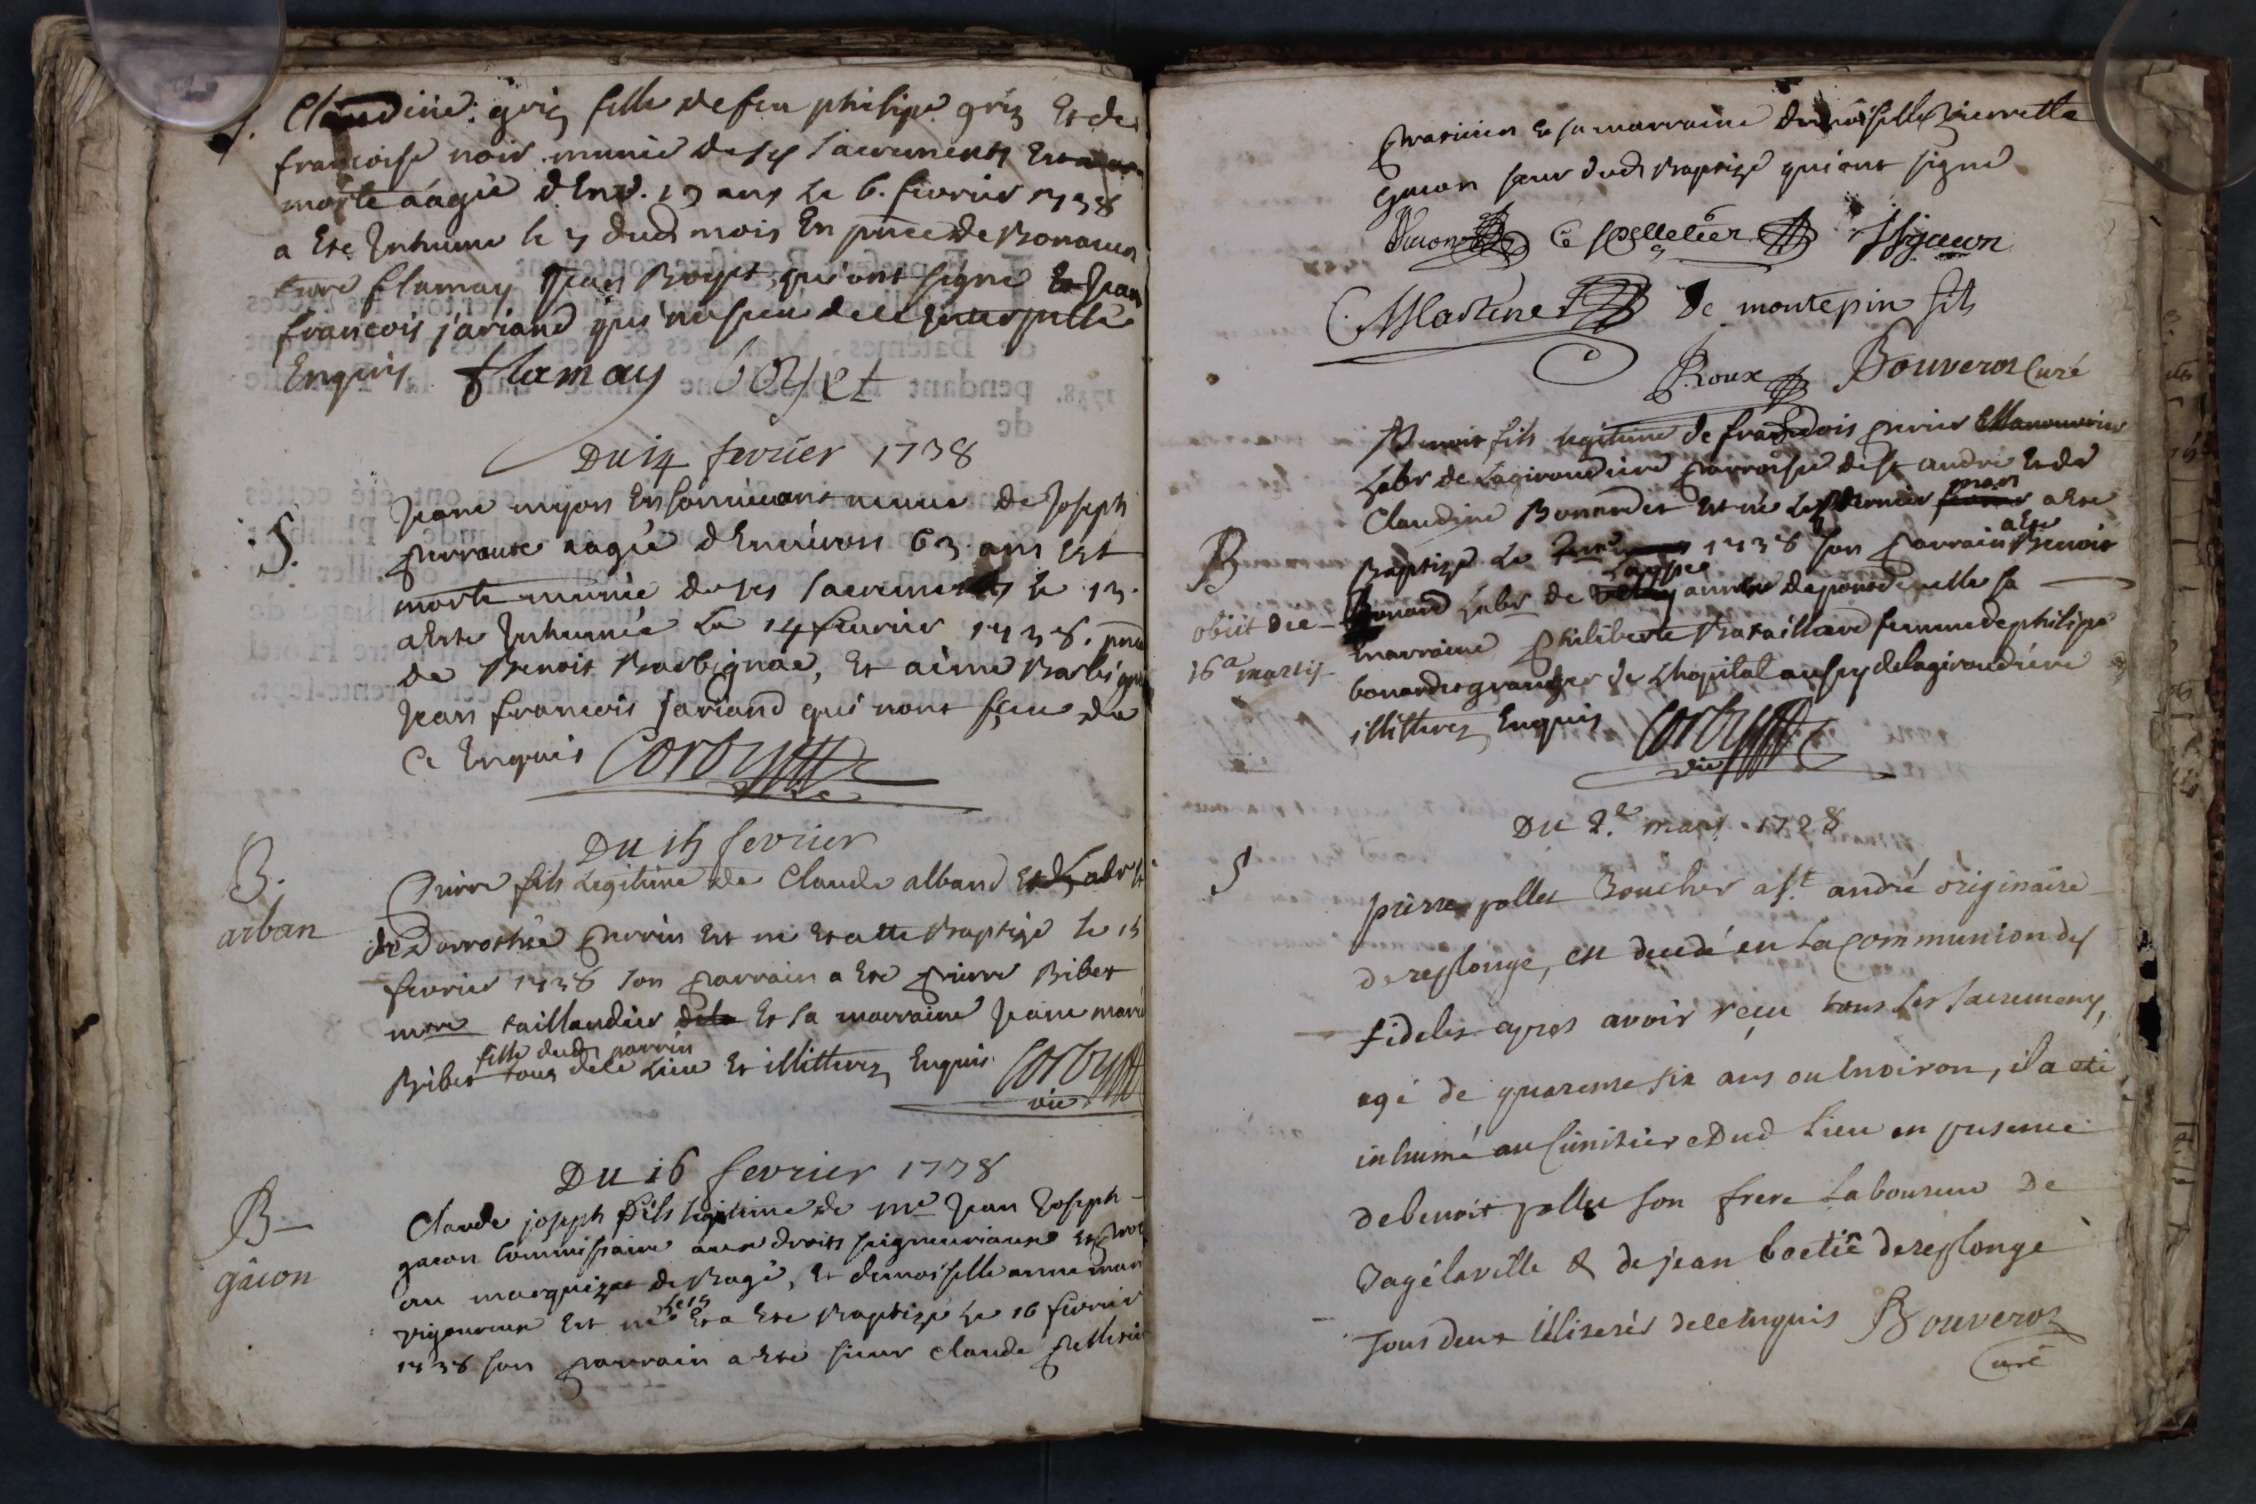 S. Claudine griz fille de feu philipe griz Et de
francoise noir munie de ses sacrements Est
morte aagée d'Env. 13 ans Le 6. fevrier 1738
a Ete Inhumé le 7 dud mois En pnce de Bonaven
ture flamay Jean Boyet qui ont signé Et Jean
francois jariand qui n'a sceu de ce Interpellé
Enquis flamay boyet
Du 14 fevrier 1738
S. Jeane myon En son vivant veuve de Joseph
perraute aagée d'Environ 63 ans Est
morte munie de ses sacrements le 13.
a Ete Inhumée Le 14 fevrier 1738. pnce
de Benoit Barbignac, Et aimé Barbignac
Jean francois jariand qui n'ont sceu de
Ce Enquis Corby
vic
Du 15 fevrier
B.
arban
Pierre fils Legitime de Claude alband Et
de Dorrothée perrin Est né Et a ete Baptizé le 15
fevrier 1738 son parrain a Ete pierre Bibet
mre taillandier Et sa marraine Jeane marie
fille dud parrin
Bibet tous dele Lieu Et illitterez Enquis Corby
vic
Du 16 fevrier 1738
B
gacon
Claude joseph fils legitime de me Jean Joseph
gacon Commissaire aux droits seigneuriaux Et
au marquizat de Bagé, Et demoiselle anne mari
Le 15
vigoureux Est né Et a Ete Baptizé Le 16 fevrier
1738 son parrain a Ete sieur Claude pelletier
praticien Et sa marraine demoiselle pierrette
gacon soeur dud Baptizé qui ont signé
Gacon C pelletier JJ gacon
C. Martine De montepin fils
Roux Bouveroz Curé
Benoit fils legitime de francois perrier
Labr de Lagirondiere parroisse de st andré Et de
mars
Claudine Bonnardet Est né Le dernier a Ete
B
a Ete
Baptizé Le 1738 son parrain Benoit
obiit die
16a martis
Bonard Labr de
marraine philiberte Bataillard femme de philipe
bonardet granger de Lhopital aussy de lagirondiere
illitterez Enquis Corby
vic
Du 2.e mars 1738
S
pierre pollet Boucher a st. andré originaire
de replonge, est decedé en La Communion des
fideles apres avoir reçu tous Les sacremens,
agé de quarente six ans ou Environ, il a eté
inhumé au Cimitier Dud Lieu en presence
de benoit pollet son frere Laboureur De
Bagé laville & de jean boetie de replonge
Tous deux illiterés de ce enquis Bouveroz
Curé